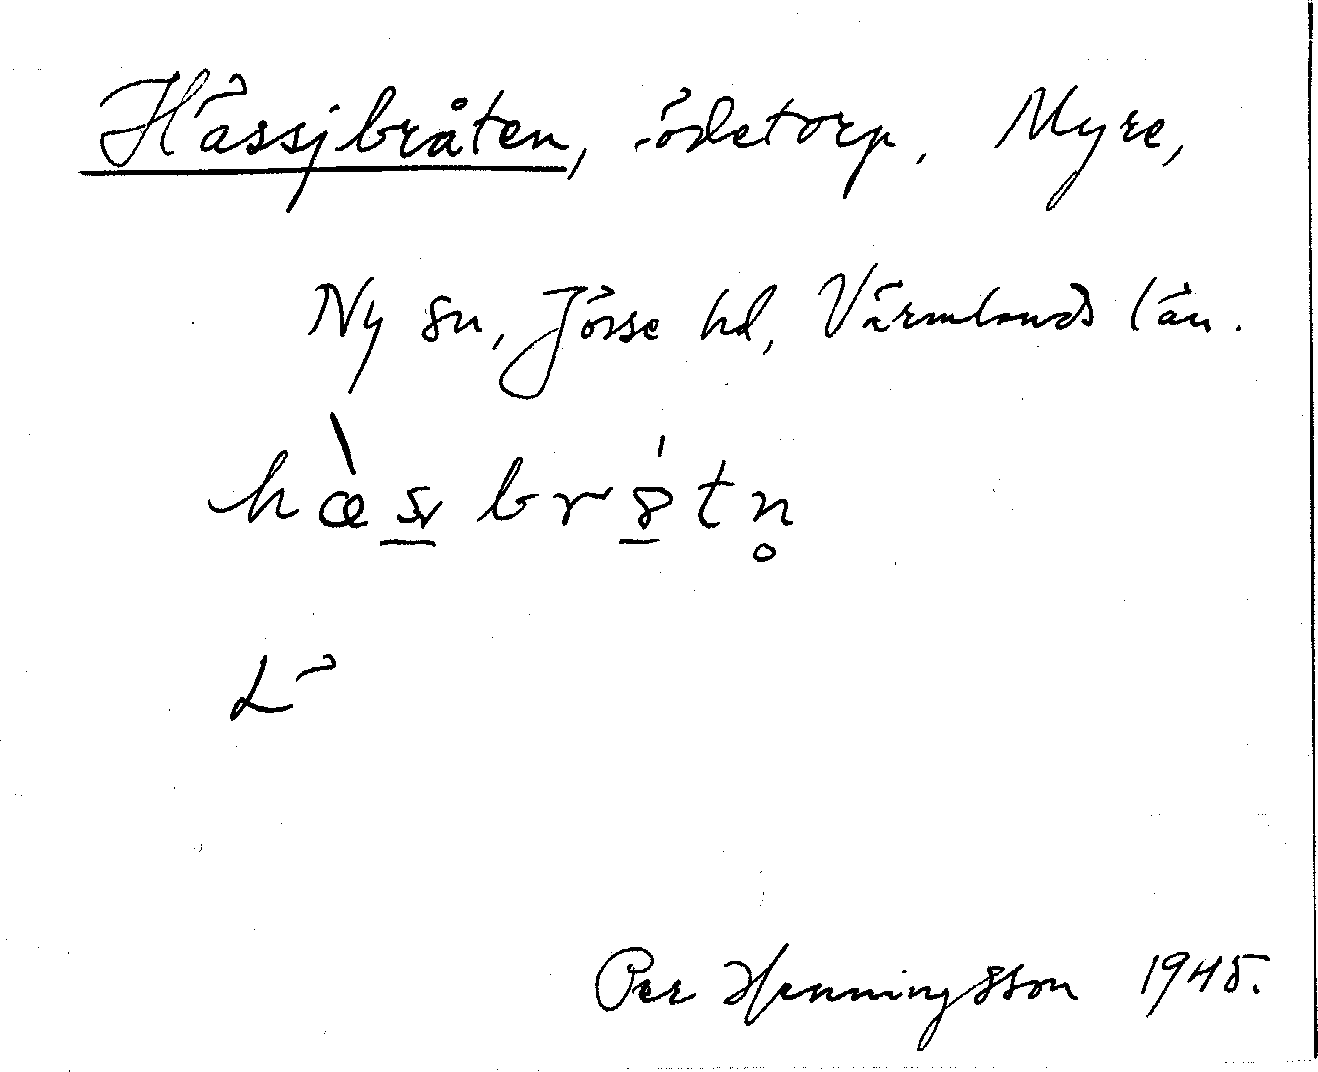 Hässjbråten, ödetorp, Myre,
Ny sn, Jösse hd, Värmlands län.
Per Henningsson 1945.